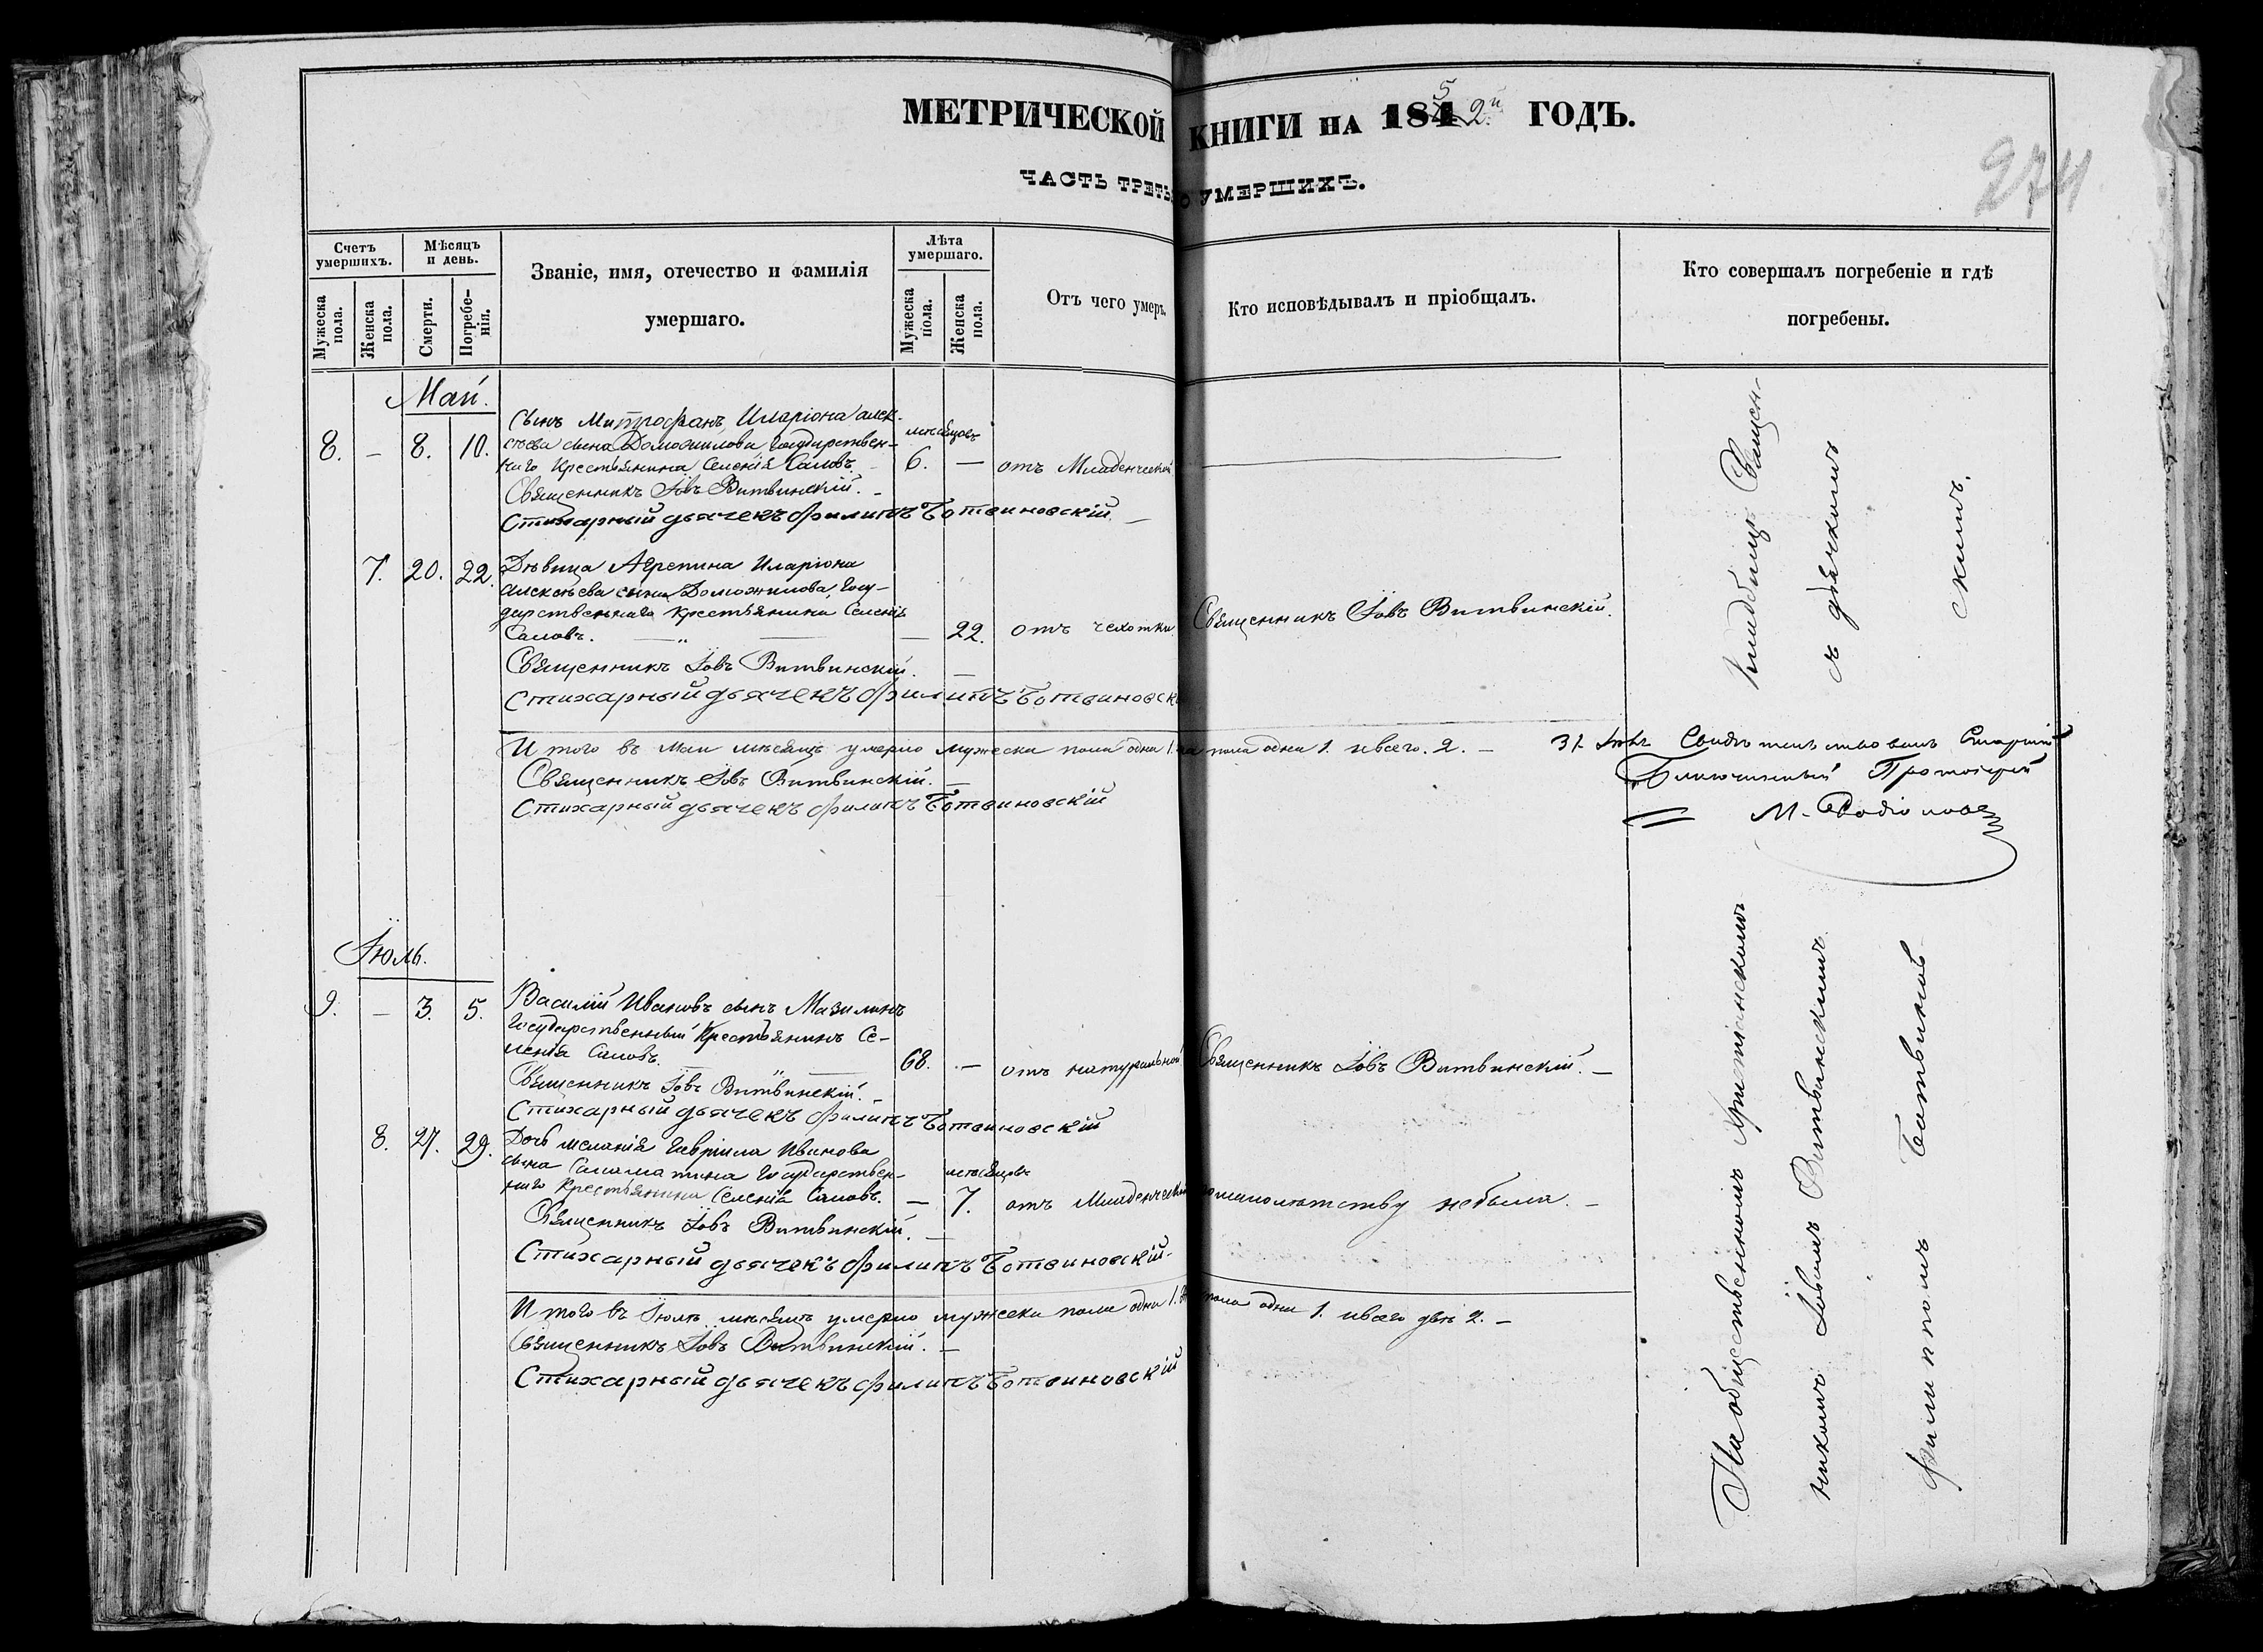 МЕТРИЧЕСКОЙ КНИГИ НА 1852й ГОДЪ.
ЧАСТЬ ТРЕТЬЯ О УМЕРШИХЪ.
274
Счетъ умершихъ.
Мужеска пола.
Женска пола.
Мѣсяцъ и день.
Смерти.
Погребенія.
Званіе, имя, отечество и фамилія умершаго.
Лѣта умершаго.
Мужеска пола.
Женска пола.
Отъ чего умеръ.
Кто исповѣдывалъ и пріобщалъ.
Кто совершалъ погребеніе и гдѣ погребены.
Май.
8. – 8. 10. Сынъ Митрофанъ, Иларіона алек-
сѣева сына Доможилова, Государствен-
наго Крестьянина Селенія Саловъ. – мѣсяцовъ 6. — отъ Младенческой
Священникъ Іовъ Витвинскій. –
Стихарный дьячекъ Филипъ Ботвиновскій –
7. 20. 22. Дѣвица Агрепина Иларіона
алексѣева сына Доможилова, Госу-
дарственнаго крестьянина Селенія
Саловъ. — 22. отъ чехотки Священникъ Іовъ Витвинскій.
Священникъ Іовъ Витвинскій. –
Стихарный дьячекъ Филипъ Ботвиновскі
Итого въ Маи мѣсяцѣ умерло мужска пола одна 1. пола одна 1. ивсего. 2. –
Священникъ Іовъ Витвинскій. –
Стихарный дьячекъ Филипъ Ботвиновскій
31. Свидѣтельствовалъ Старшій
Благочинный Протоіерей
М. Родіоновъ
Іюль.
9. – 3. 5. Василій Ивановъ сынъ Мазилинъ
Государственный Крестьянинъ Се-
ленія Саловъ. 68. – отъ натуральной Священникъ Іовъ Витвинскій. –
Священникъ Іовъ Витвинскій. –
Стихарный дьячекъ Филипъ Ботвиновскій
8. 27. 29. Дочь меланія Гавріила Иванова
сына Саламатина Государствен-
наго Крестьянина Селенія Саловъ. – мѣсяцовъ 7. отъ Младенческой помалолѣтству небыла. –
Священникъ Іовъ Витвинскій. –
Стихарный дьячекъ Филипъ Ботвиновскій –
Итого въ Іюлѣ мѣсяцѣ умерло мужеска пола одна 1. пола одна 1. ивсего двѣ 2. –
Священникъ Іовъ Витвинскій. –
Стихарный дьячекъ Филипъ Ботвиновскій
На общественномъ Христіанскомъ кладбищѣ Священ-
никомъ Іовомъ Витвинскимъ съ дьячкомъ
Филиппомъ Ботвинов-
скимъ.